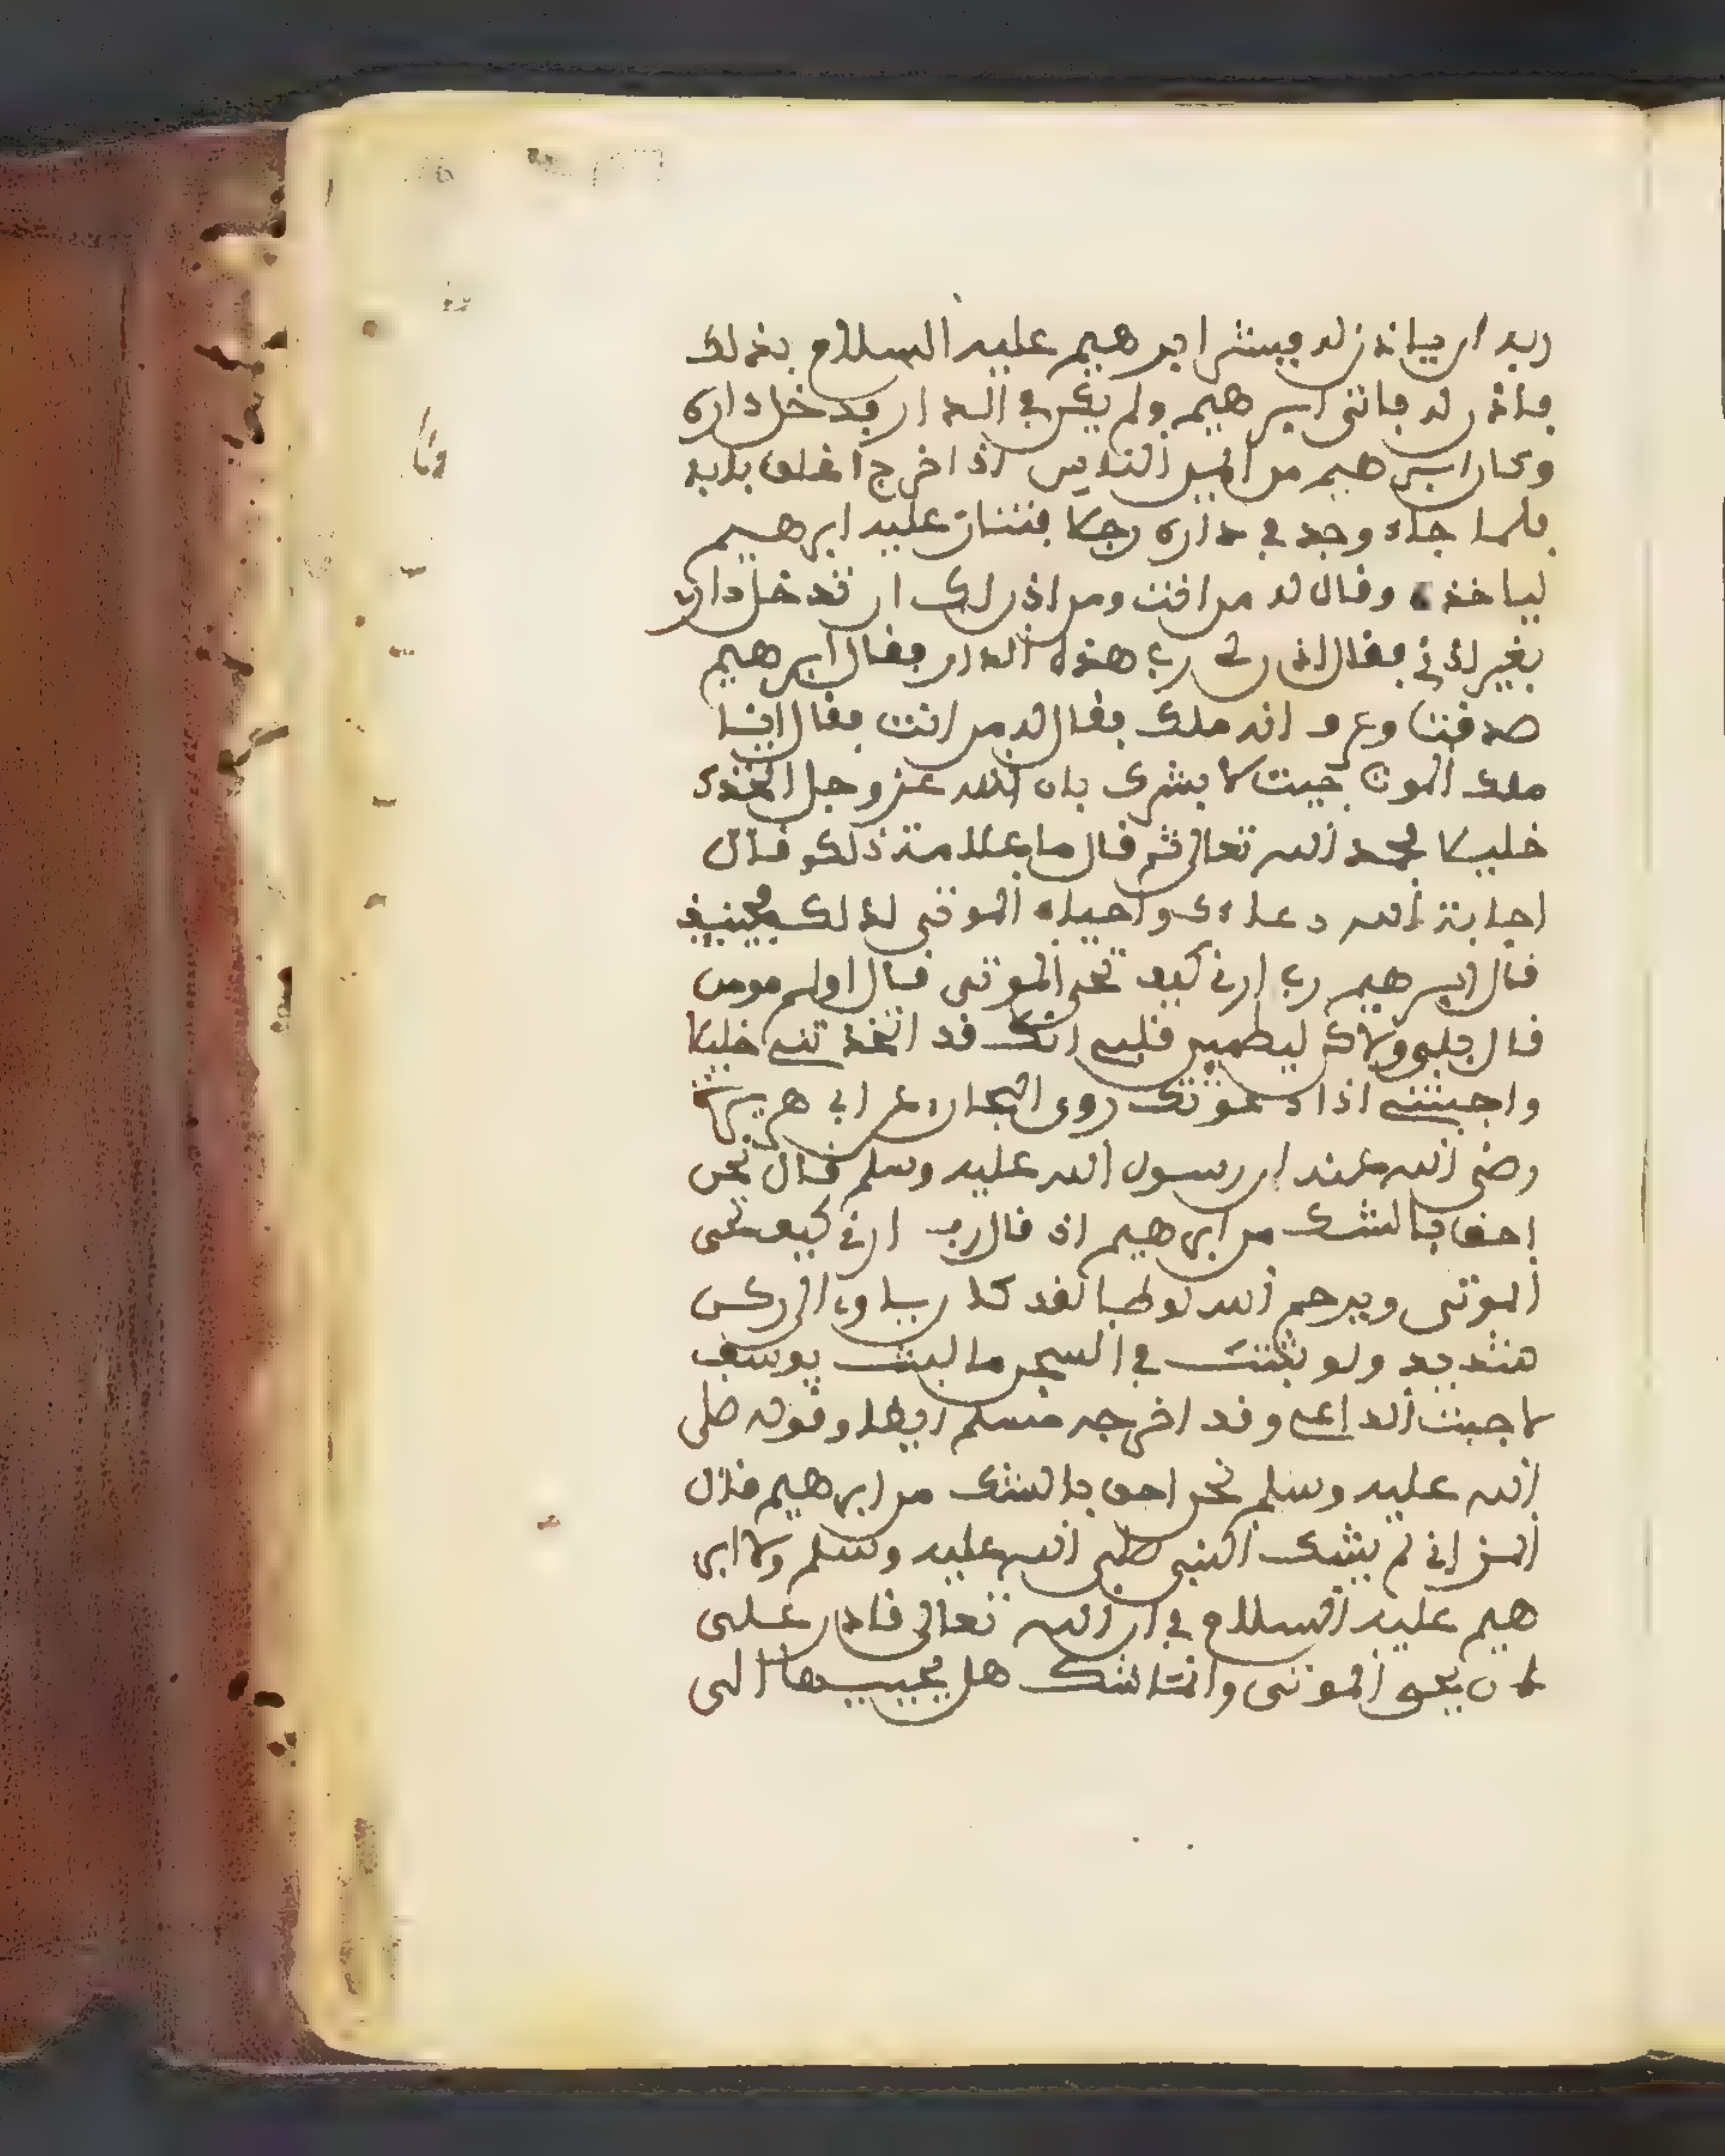 ربه ان ياذن له فيبشر ابرهيم عليه السلام بذلك
فاذن له فاتى ابرهيم ولم يكن في الدار فدخل داره
وكان ابرهيم من اغير الناس اذا خرج اغلق بابه
فلما جاء وجد في داره رجلا فثار عليه ابرهيم
لياخذه وقال له من انت ومن اذن لك ان تدخل داري
بغير اذني فقال اذن لي رب هذه الدار فقال ابرهيم
صدقت وعرف انه ملك فقال له من انت فقال انا
ملك الموت جيت لابشرك بان الله عز وجل اتخذك
خليلا فحمد الله تعالى ثم قال ما علامة ذلك قال
اجابة الله دعاءك واحياء الموتى لذلك فحينيذ
قال ابرهيم رب ارني كيف تحي الموتى قال اولم تومن
قال بلى ولاكن ليطمين قلبي انك قد اتخذتني خليلا
واجبتني اذا دعوتك روى البخاري عن ابي هريرة
رضي الله عنه ان رسول الله عليه وسلم قال نحن
احق بالشك من ابرهيم اذ قال رب ارني كيف تحي
الموتى ويرحم الله لوطا لقد كان ياوي الى ركن
شديد ولو لبثت في السجن ما لبث يوسف
لاجبت الداعي وقد اخرجه مسلم ايضا وقوله صلى
الله عليه وسلم نحن احق بالشك من ابرهيم قال
المزاني لم يشك النبي صلى الله عليه وسلم ولا ابر
هيم عليه السلام في ان الله تعالى قادر على
ان يحي الموتى وانما شك هل يجيبهما الى